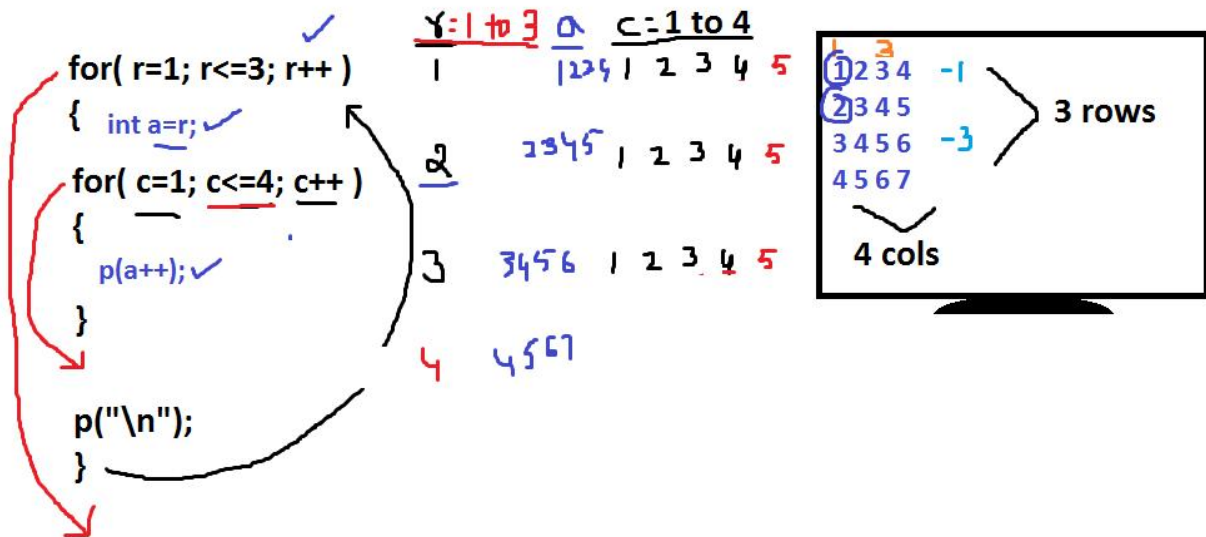 for( r=1; r<=3; r++ )
{
int a=r;
for( c=1; c<=4; c++ )
{
p(a++);
}
p("\n");
}
r=1 to 3 a c=1 to 4
1 1234 1 2 3 4 5
2 2345 1 2 3 4 5
3 3456 1 2 3 4 5
4 4567
1 3
1 2 3 4 -1
2 3 4 5
3 4 5 6 -3
4 5 6 7
3 rows
4 cols